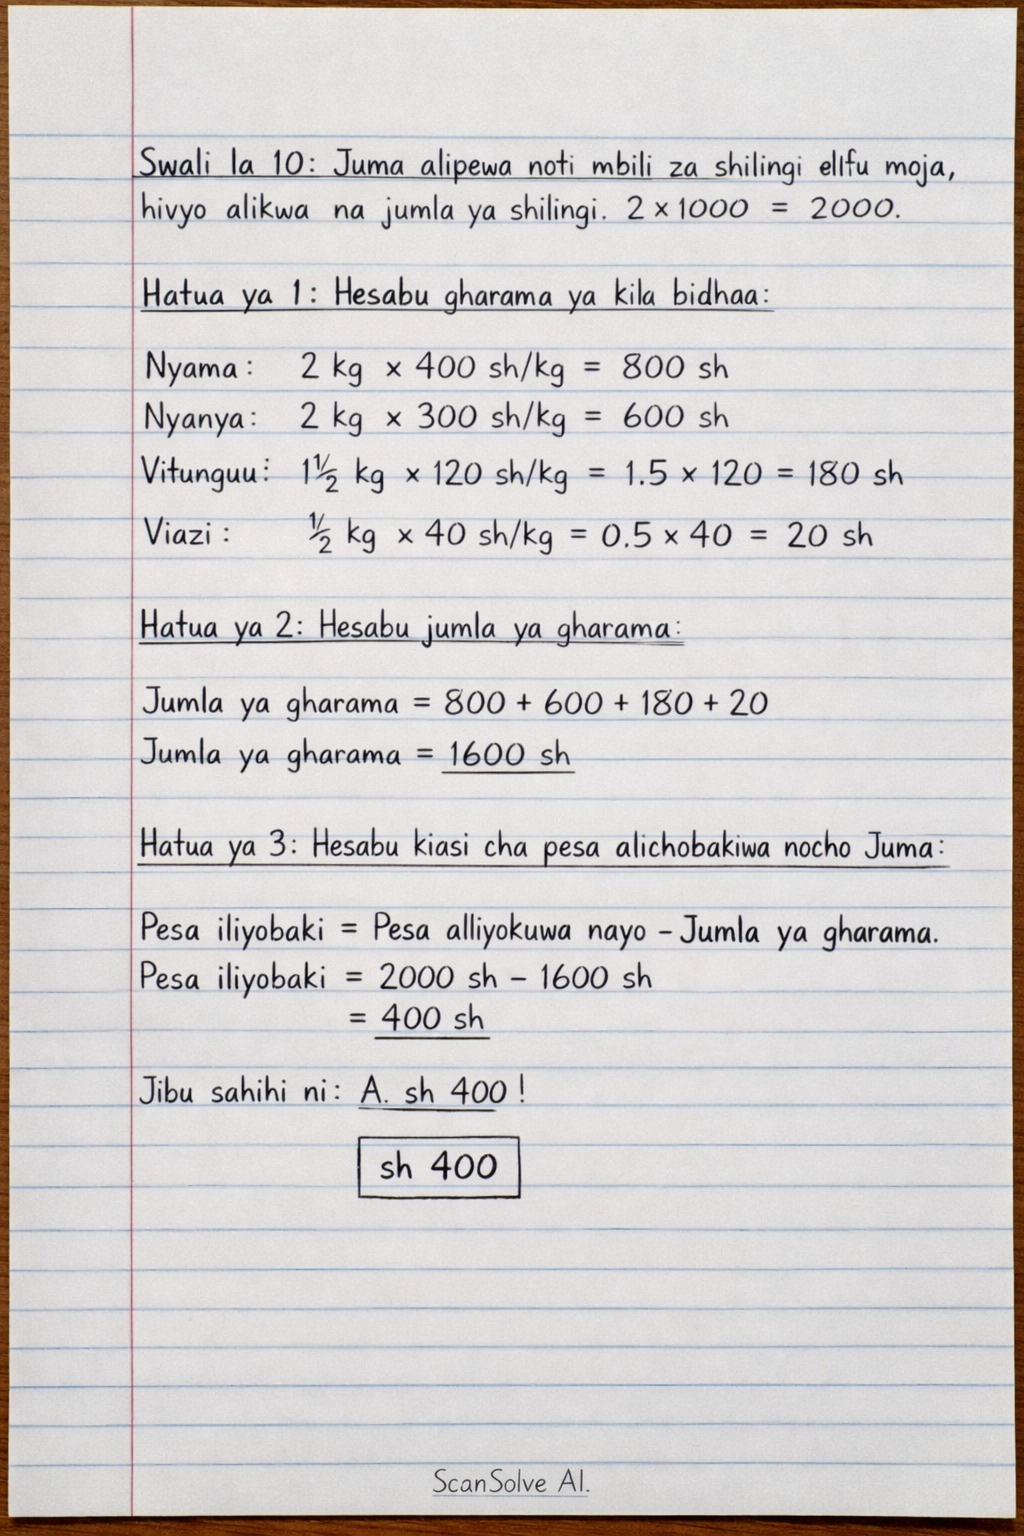 Swali la 10: Juma alipewa noti mbili za shilingi ellfu moja,
hivyo alikwa na jumla ya shilingi. 2 × 1000 = 2000.
Hatua ya 1: Hesabu gharama ya kila bidhaa:
Nyama: 2 kg × 400 sh/kg = 800 sh
Nyanya: 2 kg × 300 sh/kg = 600 sh
Vitunguu: 1½ kg × 120 sh/kg = 1.5 × 120 = 180 sh
Viazi: ½ kg × 40 sh/kg = 0.5 × 40 = 20 sh
Hatua ya 2: Hesabu jumla ya gharama:
Jumla ya gharama = 800 + 600 + 180 + 20
Jumla ya gharama = 1600 sh
Hatua ya 3: Hesabu kiasi cha pesa alichobakiwa nocho Juma:
Pesa iliyobaki = Pesa alliyokuwa nayo – Jumla ya gharama.
Pesa iliyobaki = 2000 sh – 1600 sh
= 400 sh
Jibu sahihi ni: A. sh 400!
sh 400
ScanSolve AI.